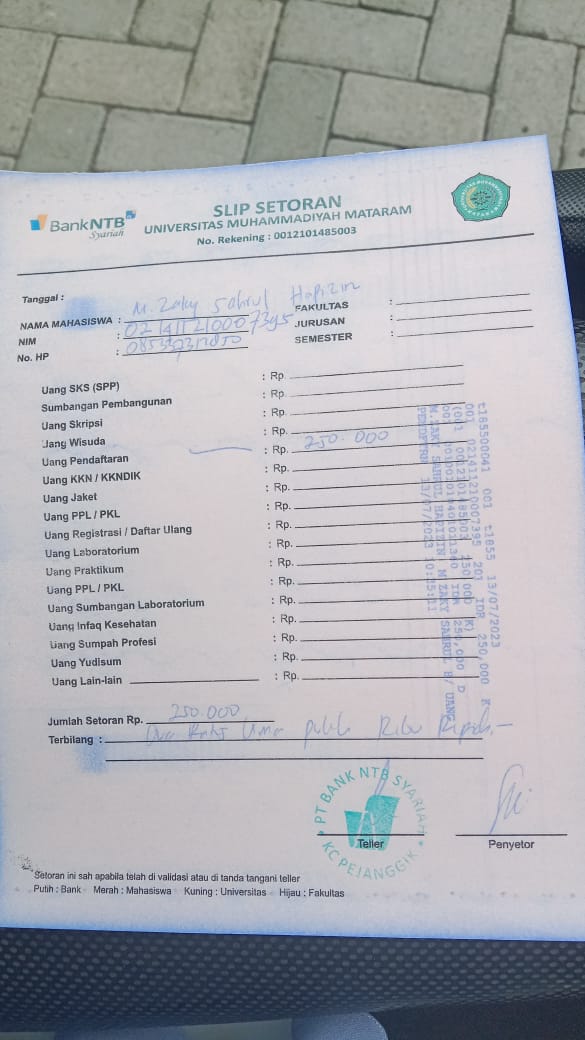 BankNTB
Syariah
SLIP SETORAN
UNIVERSITAS MUHAMMADIYAH MATARAM
No. Rekening : 0012101485003
Tanggal :
NAMA MAHASISWA : M. Zaky Sahrul Hapizin
NIM : 021411210007395
No. HP :
FAKULTAS :
JURUSAN :
SEMESTER :
Uang SKS (SPP) : Rp.
Sumbangan Pembangunan : Rp.
Uang Skripsi : Rp.
Uang Wisuda : Rp.
Uang Pendaftaran : Rp. 250.000
Uang KKN / KKNDIK : Rp.
Uang Jaket : Rp.
Uang PPL / PKL : Rp.
Uang Registrasi / Daftar Ulang : Rp.
Uang Laboratorium : Rp.
Uang Praktikum : Rp.
Uang PPL / PKL : Rp.
Uang Sumbangan Laboratorium : Rp.
Uang Infaq Kesehatan : Rp.
Uang Sumpah Profesi : Rp.
Uang Yudisum : Rp.
Uang Lain-lain : Rp.
t185500041 001 t1855 13/07/2023
001 021411210007395 201 IDR 250,000 K
(001 0012101485003 250,000 K)
IDR 250,000 D
M.ZAKY SAHRUL HAPIZIN M ZAKY SAHRUL H/ UANG
13/07/2023
Jumlah Setoran Rp. 250.000
Terbilang : Dua Ratus Lima puluh Ribu Rupiah,-
PT BANK NTB SYARIAH
KC PEJANGGIK
Teller
Penyetor
Setoran ini sah apabila telah di validasi atau di tanda tangani teller
Putih : Bank Merah : Mahasiswa Kuning : Universitas Hijau : Fakultas